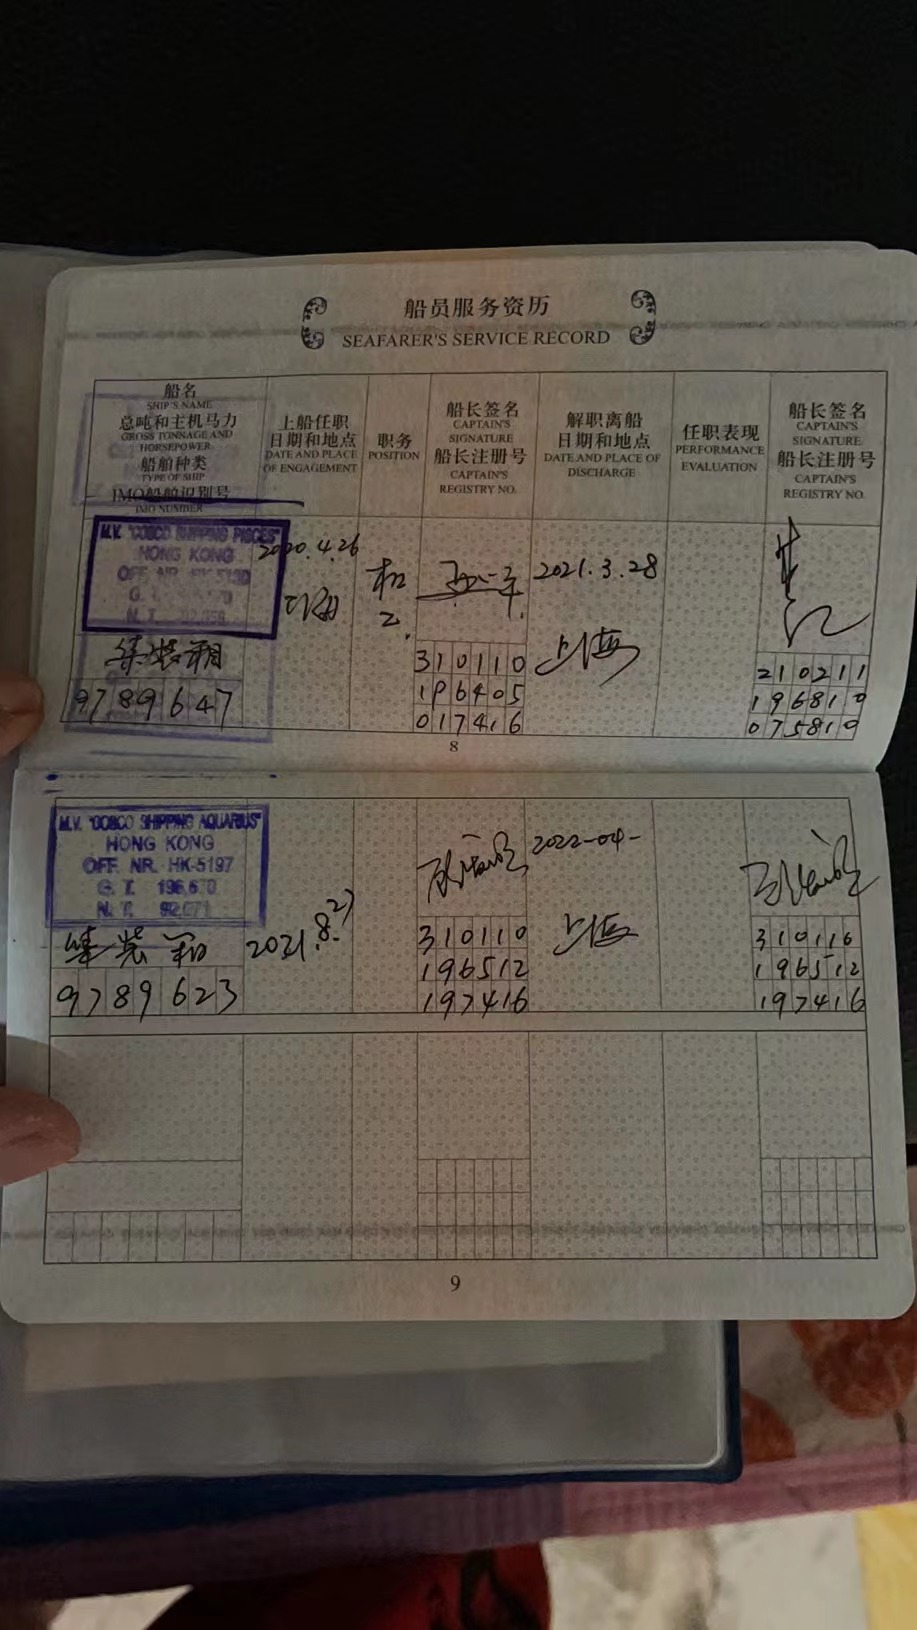 船员服务资历
SEAFARER'S SERVICE RECORD
船名
SHIP'S NAME
总吨和主机马力
GROSS TONNAGE AND
HORSEPOWER
船舶种类
TYPE OF SHIP
IMO船舶识别号
IMO NUMBER
上船任职
日期和地点
DATE AND PLACE
OF ENGAGEMENT
职务
POSITION
船长签名
CAPTAIN'S
SIGNATURE
船长注册号
CAPTAIN'S
REGISTRY NO.
解职离船
日期和地点
DATE AND PLACE OF
DISCHARGE
任职表现
PERFORMANCE
EVALUATION
船长签名
CAPTAIN'S
SIGNATURE
船长注册号
CAPTAIN'S
REGISTRY NO.
M.V. "COSCO SHIPPING PISCES"
HONG KONG
OFF. NR.
G. T.
N. T.
集装箱
9789647
2020.4.26
310110
196405
017416
2021.3.28
上海
210211
196810
075810
8
M.V. "COSCO SHIPPING AQUARIUS"
HONG KONG
OFF. NR. HK-5197
G. T. 196,670
N. T.
集装箱
9789623
2021.8.27
310110
196512
197416
2022-04-
上海
310116
196512
197416
9